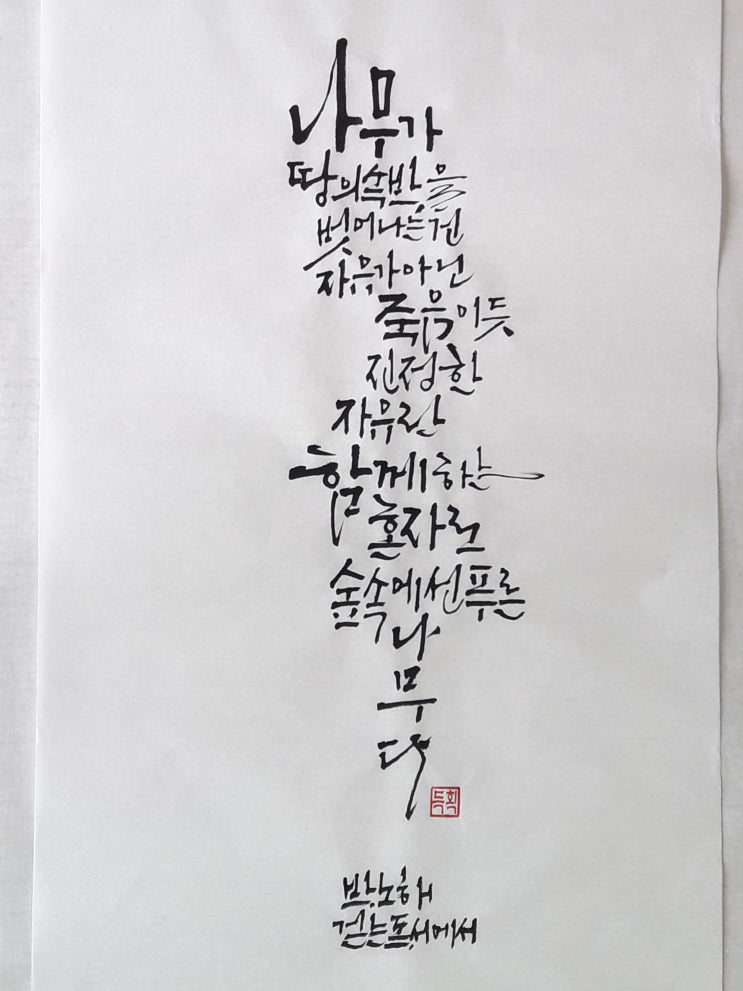 나무가
땅의 속박을
벗어나는 건
자유가 아닌
죽음이듯
진정한
자유란
함께하는
혼자로
숲속에 선 푸른
나
무
다
박노해
걷는 독서에서